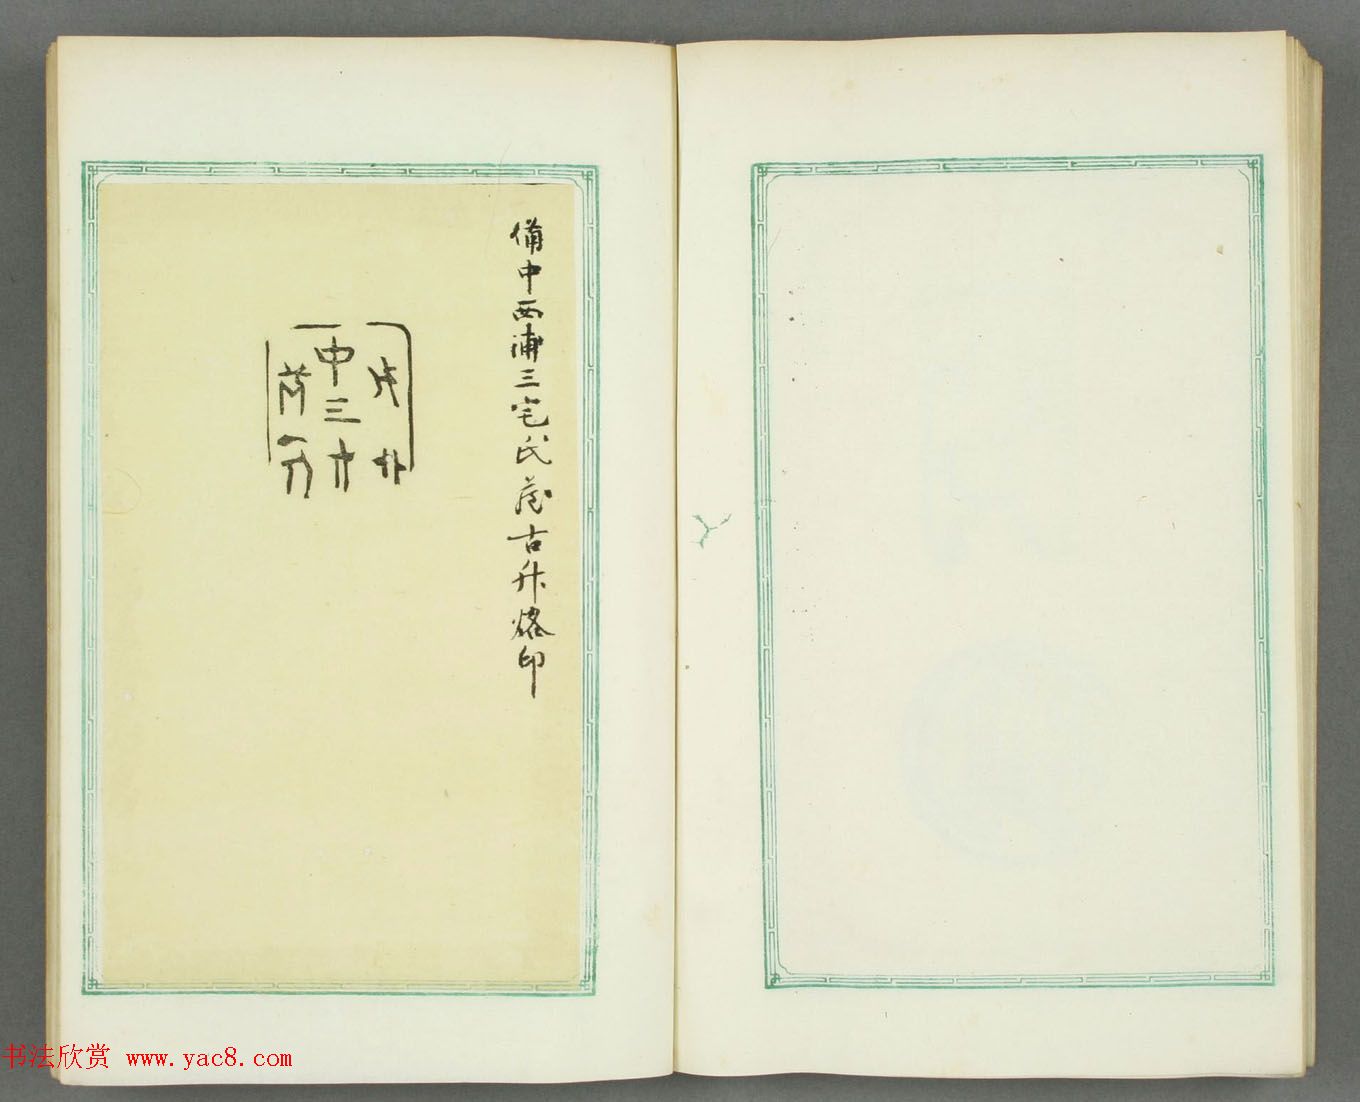 備中西浦三宅氏藏古升烙印
中三
书法欣赏 www.yac8.com